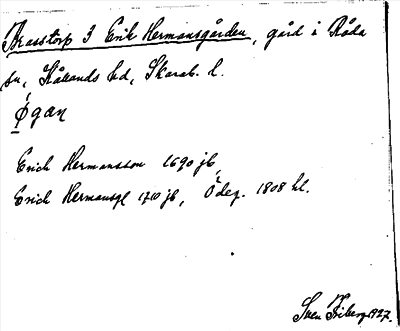 Brasstorp 3 Erik Hermansgården, gård i Råda
sn, Kållands hd, Skarab. l.
Øgan
Erich Hermansson 1690 jb,
Erich Hermansgl 1710 jb, Ödeg. 1808 hl.
Sven Friberg 1927.